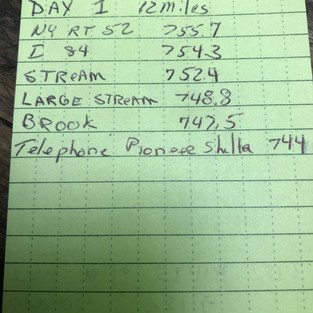 DAY I 12 miles
NY RT 52 755.7
I 84 754.3
STREAM 752.4
LARGE STREAM 748.8
BROOK 747.5
Telephone Pioneer Shelta 744